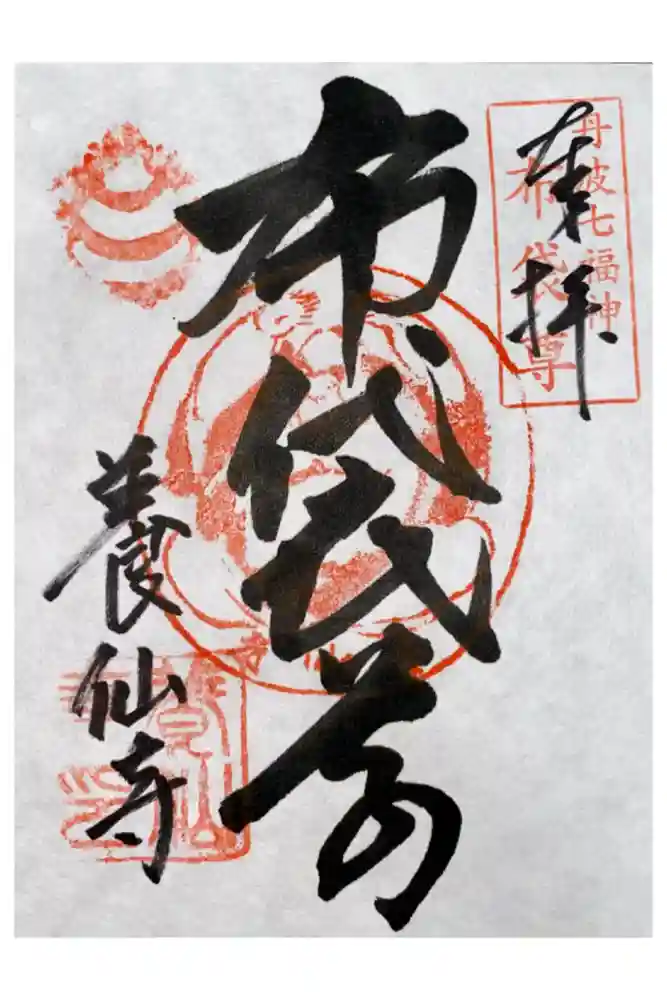 奉拝
丹波七福神
布袋尊
布袋尊
養仙寺